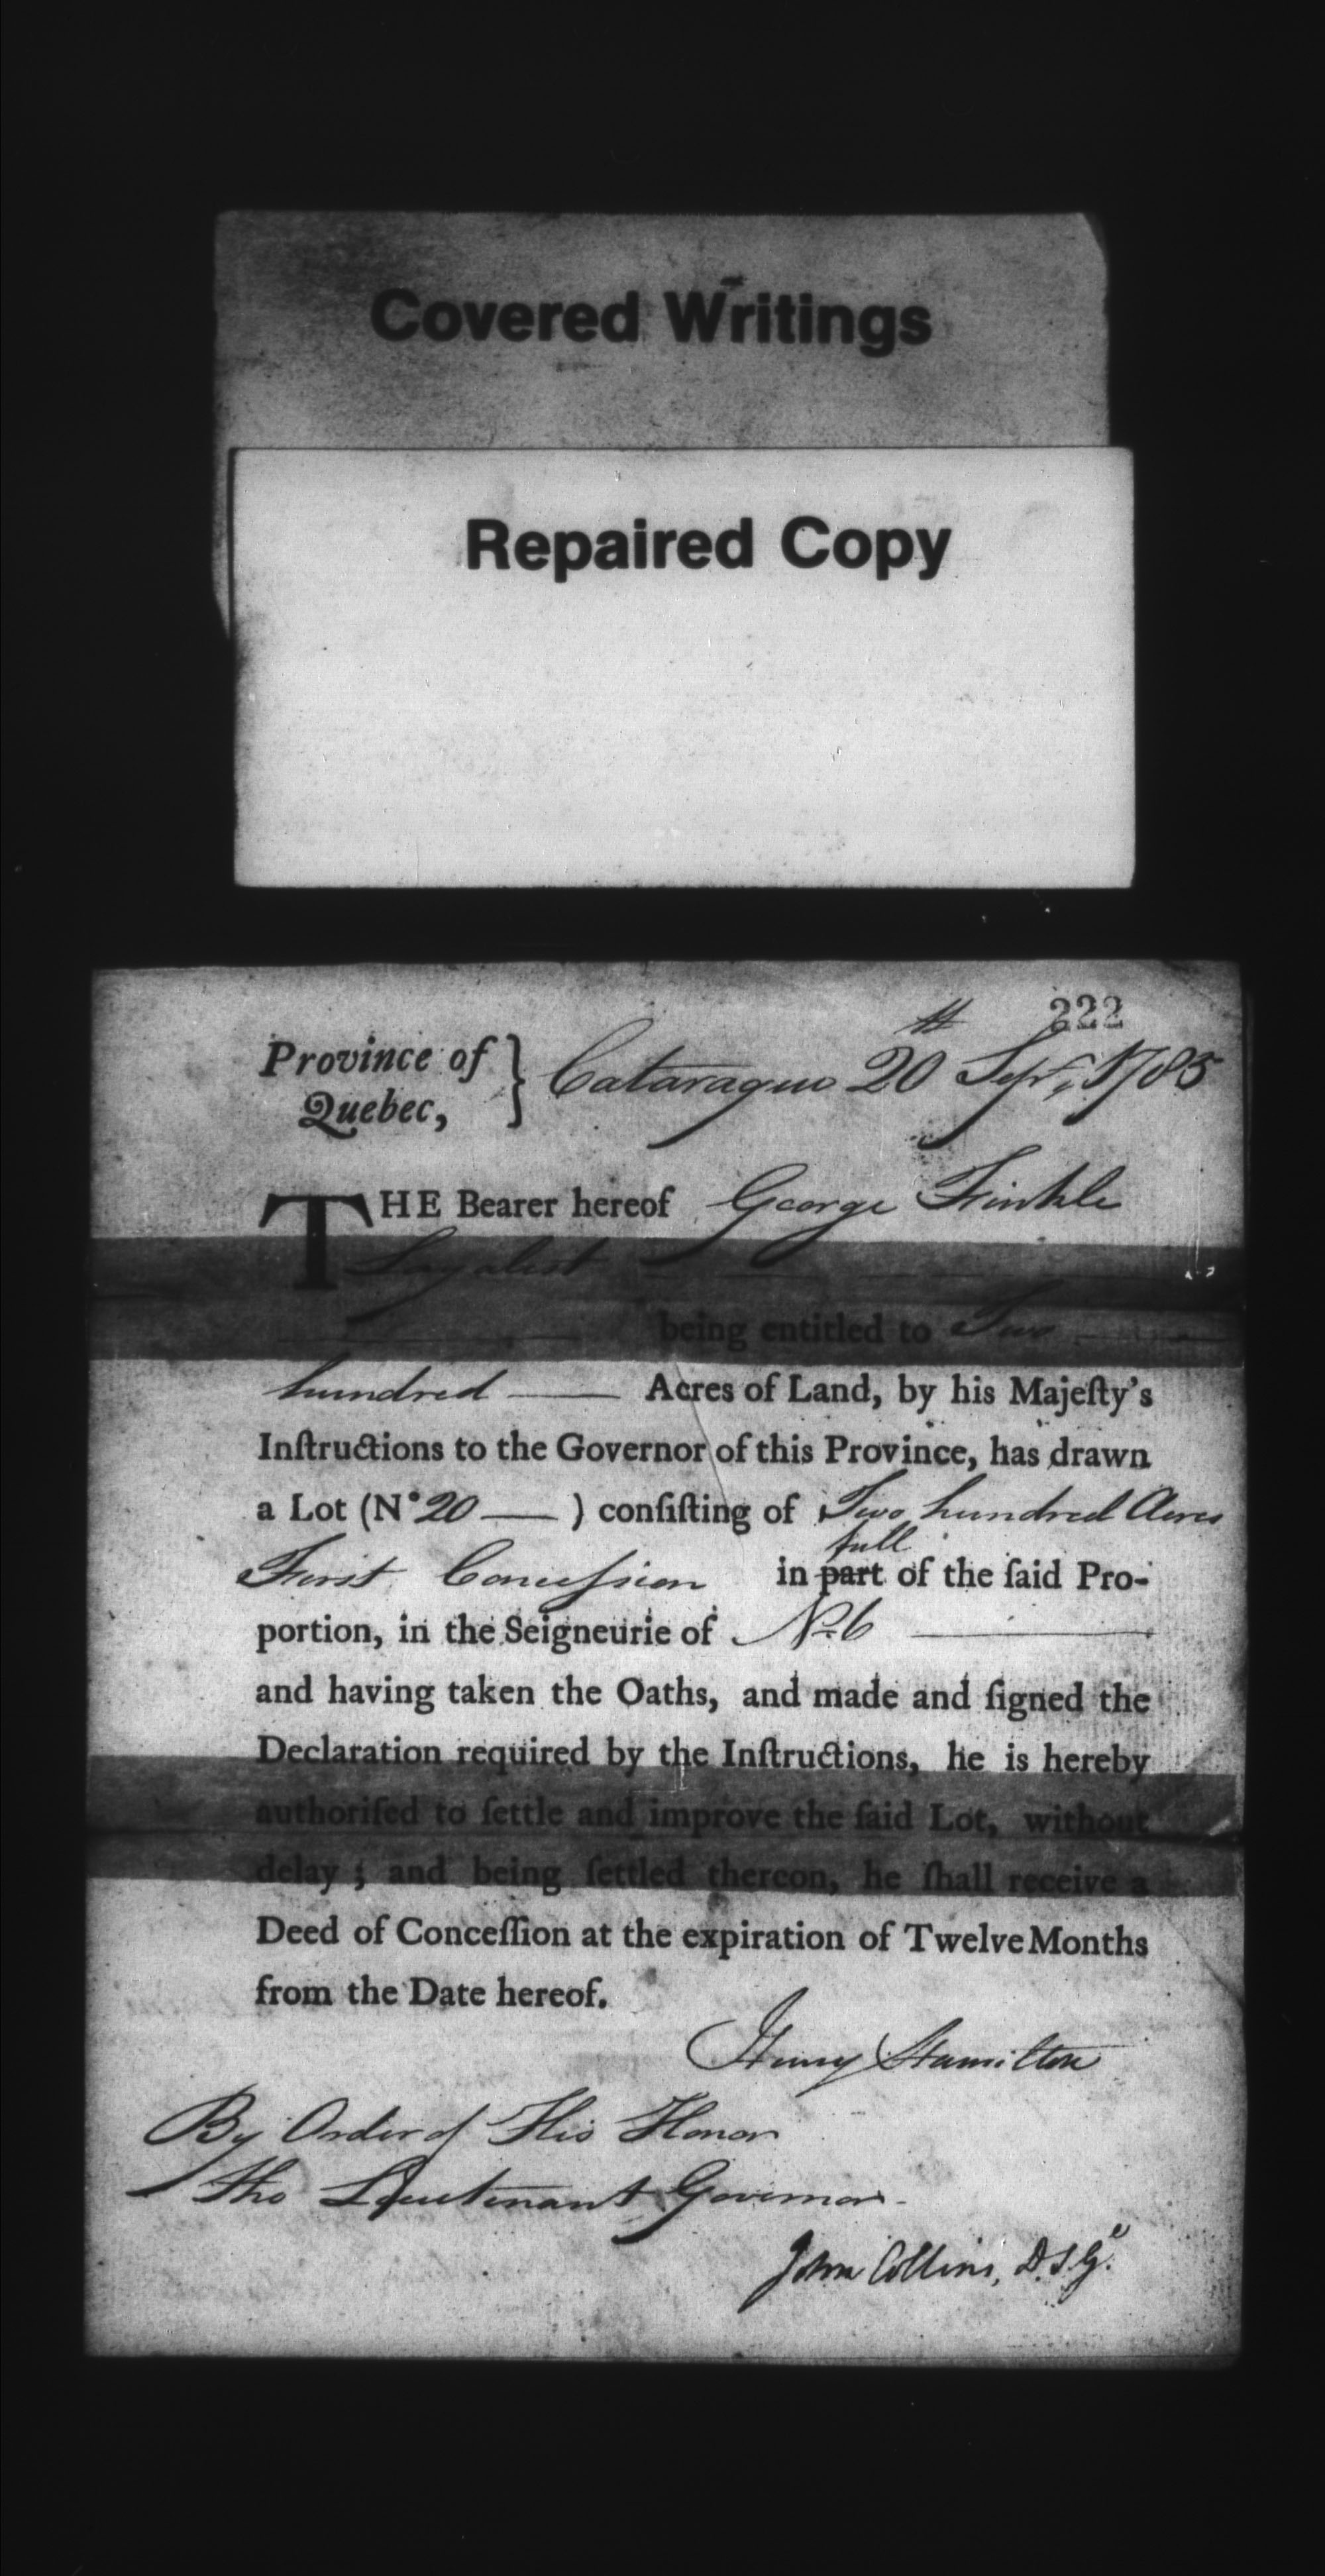 Covered Writings
Repaired Copy
222
Province of Quebec, } Cataraqui 20th Sepr, 1785
THE Bearer hereof George Finkle
Loyalist
being entitled to Two
hundred — Acres of Land, by his Majeſty's
Inſtructions to the Governor of this Province, has drawn
a Lot (N° 20 — ) conſiſting of Two hundred Acres
full
First Conceſsion in part of the ſaid Pro-
portion, in the Seigneurie of No. 6 —
and having taken the Oaths, and made and ſigned the
Declaration required by the Inſtructions, he is hereby
authoriſed to ſettle and improve the ſaid Lot, without
delay ; and being ſettled thereon, he ſhall receive a
Deed of Conceſſion at the expiration of Twelve Months
from the Date hereof.
Henry Hamilton
By Order of His Honor
The Lieutenant Governor.
John Collins, D.S.G.